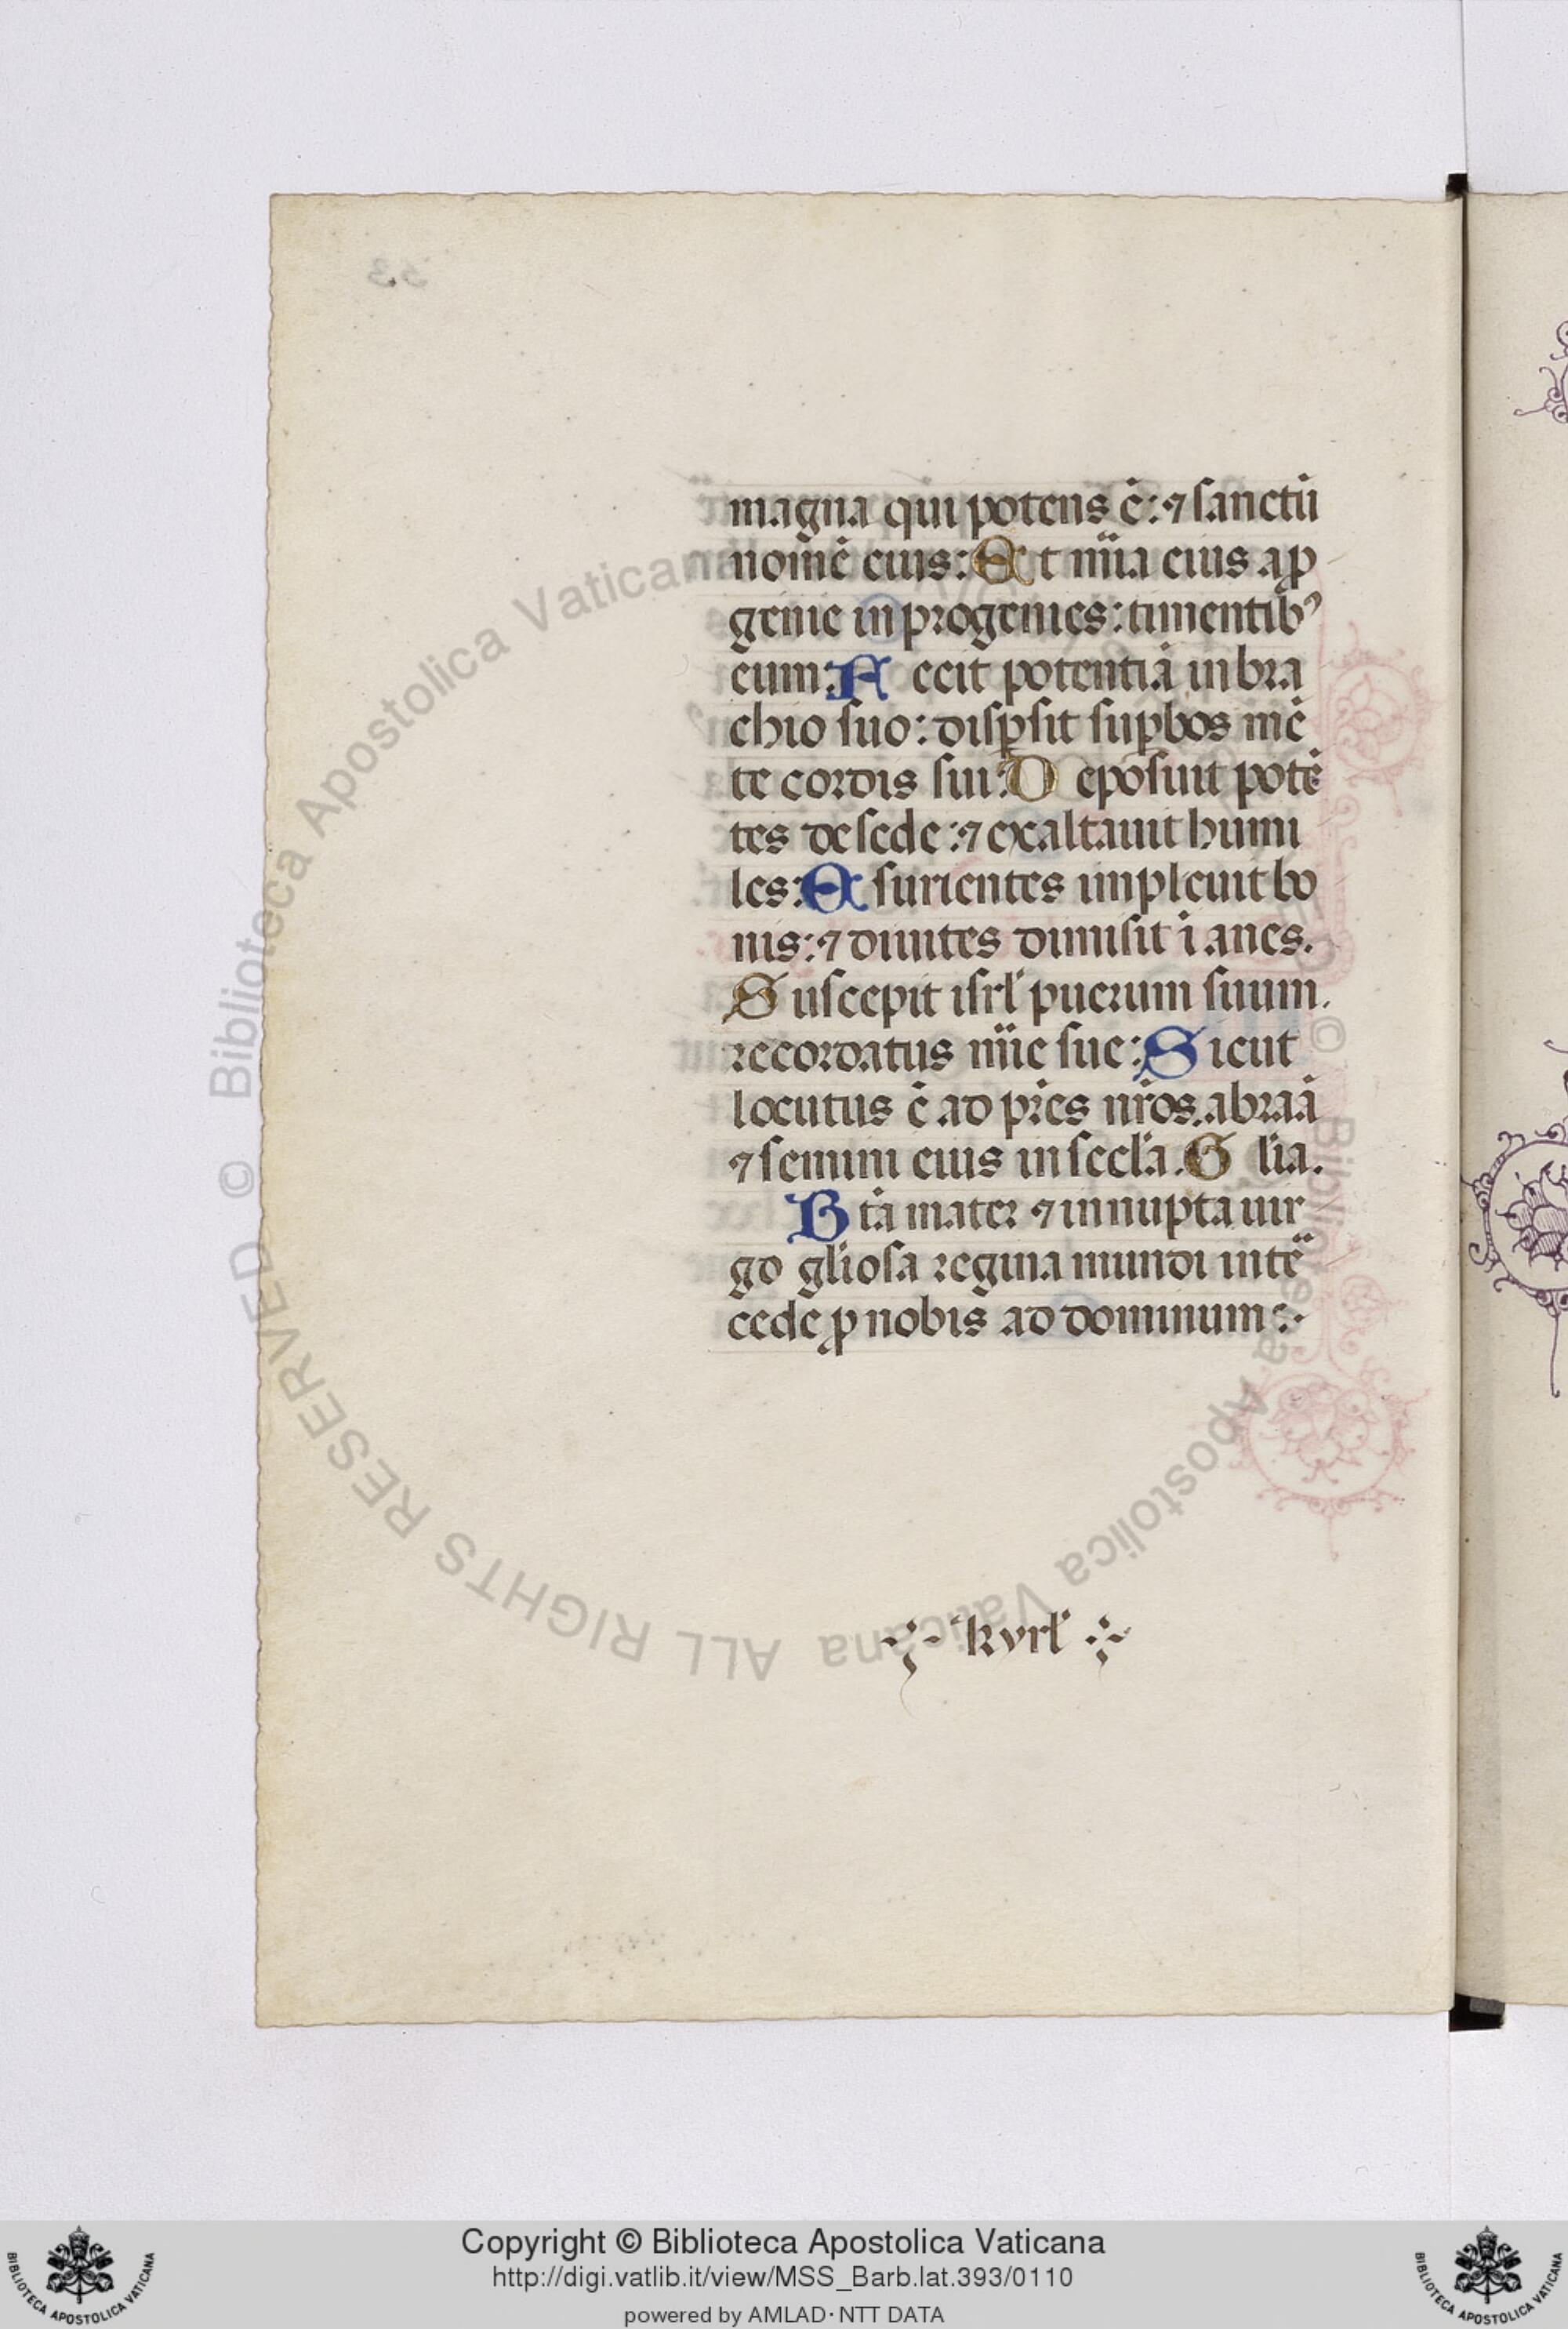 magna qui potens ē: ⁊ sanctū
nomē eius: Et mīa eius a ꝓ
genie in progenies: timentib⁹
eum: Fecit potentiā in bra
chio suo: disꝑsit suꝑbos mē
te cordis sui: Deposuit potē
tes de sede: ⁊ exaltauit humi
les: Esurientes impleuit bo
nis: ⁊ diuites dimisit i anes.
Suscepit isrl̄ puerum suum.
recordatus mīe sue: Sicut
locutus ē ad pr̄es nr̄os. abraā
⁊ semini eius in secl̄a. Gl̄ia.
Btā mater ⁊ innupta uir
go gl̄iosa regina mundi intē
cede ꝓ nobis ad dominum :·
kyrl̄
© Biblioteca Apostolica Vaticana
ALL RIGHTS RESERVED
Copyright © Biblioteca Apostolica Vaticana
http://digi.vatlib.it/view/MSS_Barb.lat.393/0110
powered by AMLAD·NTT DATA
BIBLIOTECA APOSTOLICA VATICANA
BIBLIOTECA APOSTOLICA VATICANA